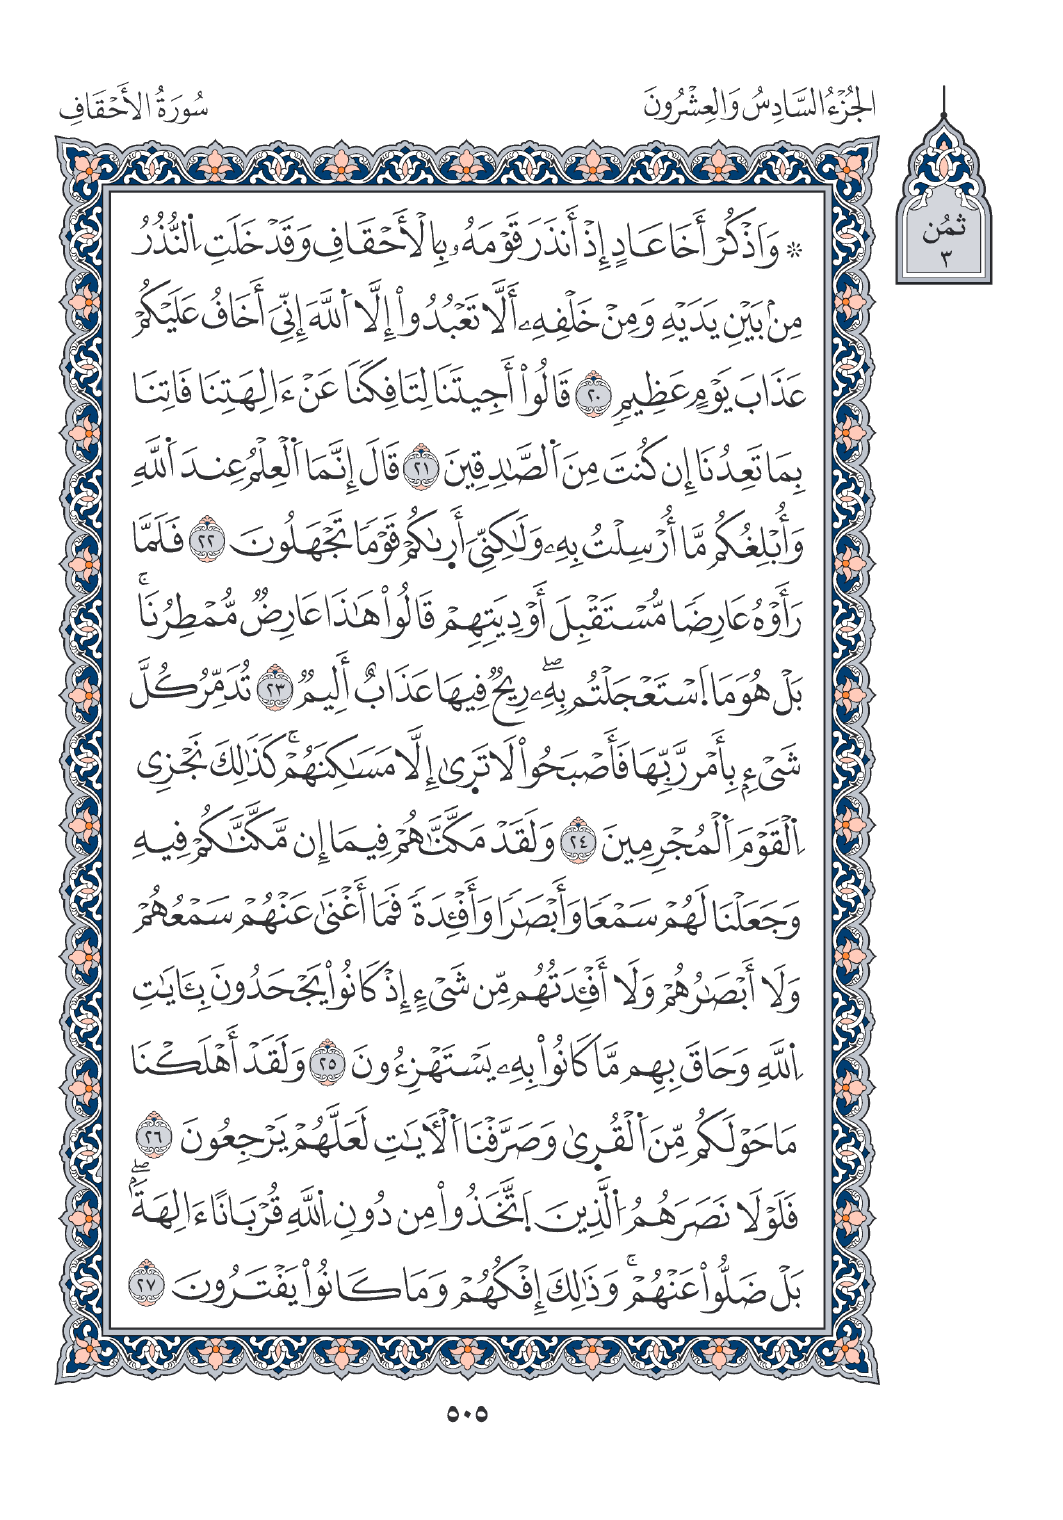 الجُزْءُ السَّادِسُ وَالعِشْرُونَ
سُورَةُ الأَحْقَافِ
ثمُن
٣
۞ وَاَذْكُرْ أَخَا عَادٍ إِذْ أَنذَرَ قَوْمَهُۥ بِالْأَحْقَافِ وَقَدْ خَلَتِ اِ۬لنُّذُرُ
مِنۢ بَيْنِ يَدَيْهِ وَمِنْ خَلْفِهِۦ أَلَّا تَعْبُدُوٓاْ إِلَّا اَ۬للَّهَ إِنِّيَ أَخَافُ عَلَيْكُمْ
عَذَابَ يَوْمٍ عَظِيمٖ ٢٠ قَالُوٓاْ أَجِيتَنَا لِتَافِكَنَا عَنْ ءَالِهَتِنَا فَاتِنَا
بِمَا تَعِدُنَا إِن كُنتَ مِنَ اَ۬لصَّٰدِقِينَ ٢١ قَالَ إِنَّمَا اَ۬لْعِلْمُ عِندَ اَ۬للَّهِ
وَأُبْلِغُكُم مَّا أُرْسِلْتُ بِهِۦ وَلَٰكِنِّيَ أَر۪ىٰكُمْ قَوْمٗا تَجْهَلُونَ ٢٢ فَلَمَّا
رَأَوْهُ عَارِضٗا مُّسْتَقْبِلَ أَوْدِيَتِهِمْ قَالُواْ هَٰذَا عَارِضٞ مُّمْطِرُنَاۚ
بَلْ هُوَ مَا اَ۪سْتَعْجَلْتُم بِهِۦۖ رِيحٞ فِيهَا عَذَابٌ أَلِيمٞ ٢٣ تُدَمِّرُ كُلَّ
شَےْءِۢ بِأَمْر رَّبِّهَا فَأَصْبَحُواْ لَا تَر۪ىٰ إِلَّا مَسَٰكِنَهُمْۚ كَذَٰلِكَ نَجْزِي
اِ۬لْقَوْمَ اَ۬لْمُجْرِمِينَ ٢٤ وَلَقَدْ مَكَّنَّٰهُمْ فِيمَا إِن مَّكَّنَّٰكُمْ فِيهِ
وَجَعَلْنَا لَهُمْ سَمْعٗا وَأَبْصَٰرٗا وَأَفْـِٔدَةٗ فَمَا أَغْنَىٰ عَنْهُمْ سَمْعُهُمْ
وَلَا أَبْصَٰرُهُمْ وَلَا أَفْـِٔدَتُهُم مِّن شَےْءٍ إِذْ كَانُواْ يَجْحَدُونَ بِـَٔايَٰتِ
اِ۬للَّهِ وَحَاقَ بِهِم مَّا كَانُواْ بِهِۦ يَسْتَهْزِءُونَ ٢٥ وَلَقَدْ أَهْلَكْنَا
مَا حَوْلَكُم مِّنَ اَ۬لْقُر۪ىٰ وَصَرَّفْنَا اَ۬لْأٓيَٰتِ لَعَلَّهُمْ يَرْجِعُونَ ٢٦
فَلَوْلَا نَصَرَهُمُ اُ۬لَّذِينَ اَ۪تَّخَذُواْ مِن دُونِ اِ۬للَّهِ قُرْبَانًا ءَالِهَةَۢۖ
بَلْ ضَلُّواْ عَنْهُمْۚ وَذَٰلِكَ إِفْكُهُمْ وَمَا كَانُواْ يَفْتَرُونَ ٢٧
٥٠٥